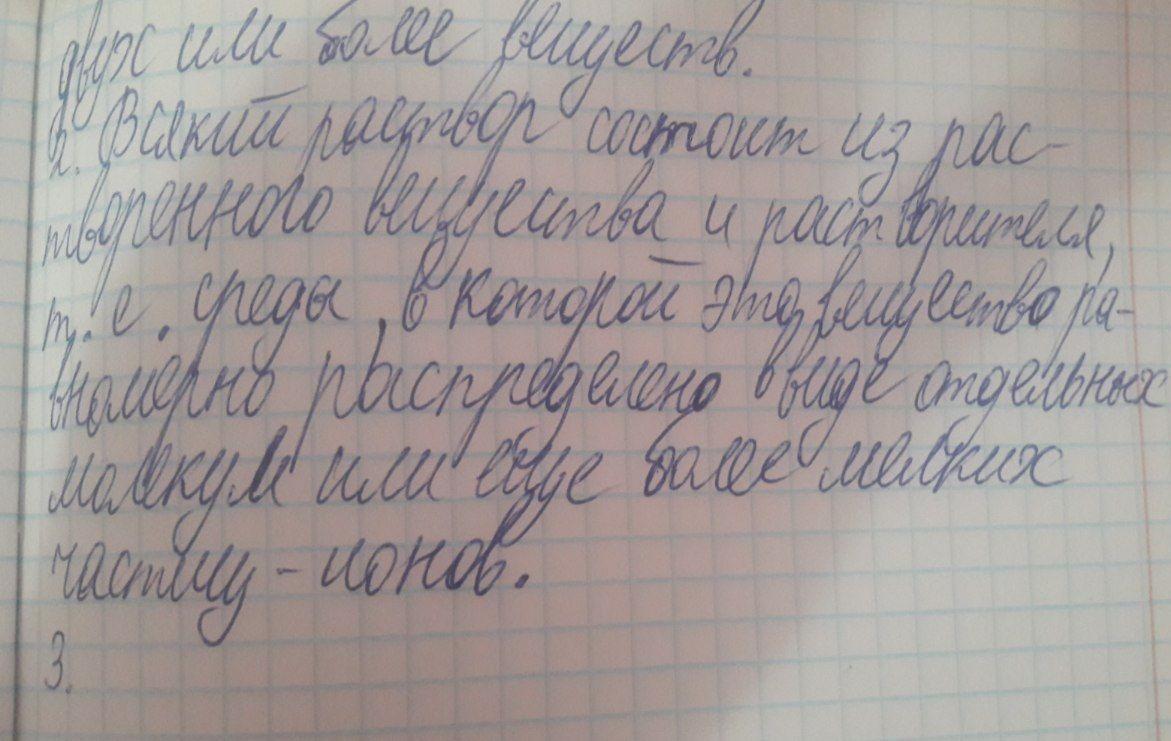 двух или более веществ.
2. Всякий раствор состоит из рас-
творенного вещества и растворителя,
т. е. среды, в которой это вещество ра-
вномерно распределено в виде отдельных
молекул или еще более мелких
частиц - ионов.
3.